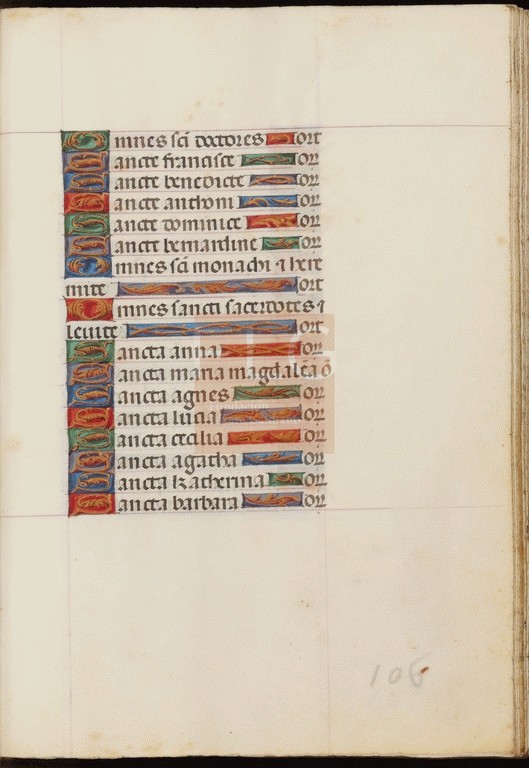 Omnes sci doctores Ort
Sancte francisce Orr
Sancte benedicte Orr
Sancte anthoni Orr
Sancte dominice Orr
Sancte bernardine Orr
Omnes sci monachi ⁊ here
mite Ort
Omnes sancti sacerdotes ⁊
leuite Ort
Sancta anna Orr
Sancta maria magdalēa ō
Sancta agnes Orr
Sancta lucia Orr
Sancta cecilia Orr
Sancta agatha Orr
Sancta katherina Orr
Sancta barbara Orr
108